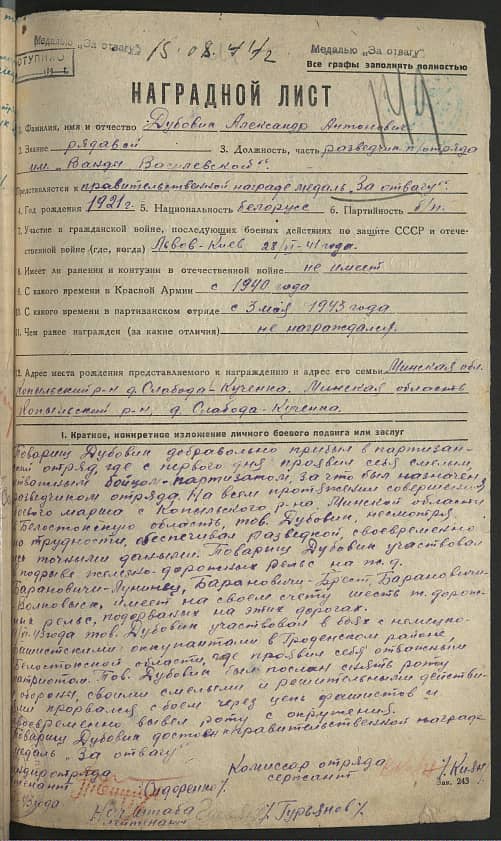 Медалью „За отвагу"
15.08.44г
Медалью „За отвагу"
Все графы заполнять полностью
НАГРАДНОЙ ЛИСТ
1. Фамилия, имя и отчество Дубовик Александр Антонович
2. Звание рядовой 3. Должность, часть разведчик п/отряда
им. „Ванды Василевской".
Представляется к правительственной награде медаль „За отвагу".
4. Год рождения 1921г. 5. Национальность белорусс 6. Партийность б/п.
7. Участие в гражданской войне, последующих боевых действиях по защите СССР и отече-
ственной войне (где, когда) Львов-Киев 28/VI-41 года.
8. Имеет ли ранения и контузии в отечественной войне не имеет
9. С какого времени в Красной Армии с 1940 года
10. С какого времени в партизанском отряде с 3 мая 1943 года
11. Чем ранее награжден (за какие отличия) не награждался.
12. Адрес места рождения представляемого к награждению и адрес его семьи Минская обл.
Копыльский р-н д. Слобода-Кученка. Минская область
Копыльский р-н, д. Слобода-Кученка.
I. Краткое, конкретное изложение личного боевого подвига или заслуг
Товарищ Дубовик добровольно прибыл в партизан-
ский отряд, где с первого дня проявил себя смелым,
отважным бойцом-партизатом, за что был назначен
разведчиком отряда. На всем протяжении совершения
боевого марша с Копыльского р-на Минской области
в Белостокскую область, тов. Дубовик, несмотря
на трудности, обеспечивал разведкой, своевременно
и точными даными. Товарищ Дубовик участвовал
в подрыве железно-дорожных рельс на ж.д.
Барановичи-Лунинец, Барановичи-Брест, Барановичи-
Волковыск, имеет на своем счету шесть ж. дорож-
ных рельс, подорваных на этих дорогах.
43 года тов. Дубовик участвовал в боях с немецко-
фашистскими оккупантами в Гроденском районе,
Белостокской области, где проявил себя отважным
патриотом. Тов. Дубовик был послан снять роту
с обороны, своими смелыми и решительными действи-
ями прорвался с боем через цепь фашистов и
своевременно вывел роту с окружения.
Товарищ Дубовик достоен правительственной награде
медаль „За отвагу"
Командир отряда Комиссар отряда
лейтенант Сидоренко/ сержант /Киян/
43 года Зак. 243
Нач. штаба
лейтенант /Гурьянов/.